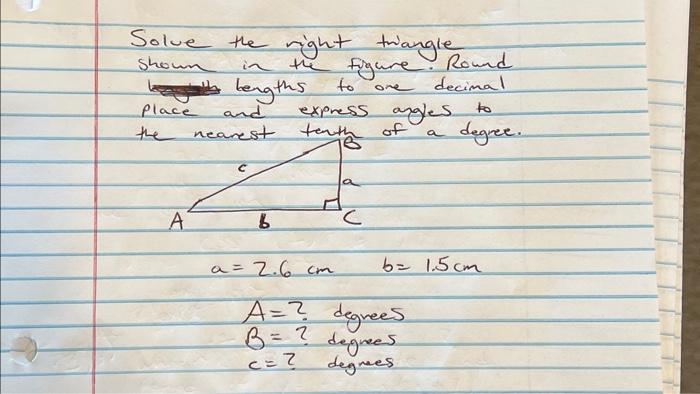 Solve the right triangle
shown in the figure. Round
lengths to one decimal
place and express angles to
the nearest tenth of a degree.
B
c
a
A
b
C
a = 2.6 cm b = 1.5 cm
A = ? degrees
B = ? degrees
c = ? degrees